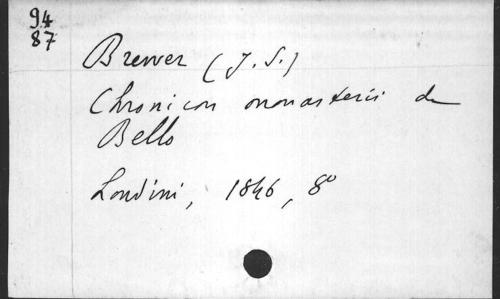 94
87
Brewer (J. S.)
Chronicon monasterii de
Bello
Londini, 1846, 8º